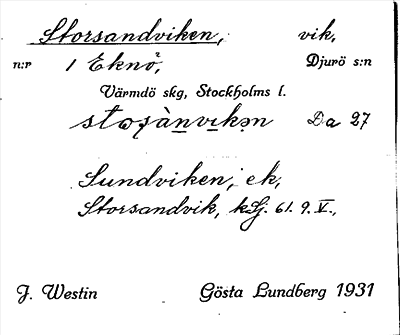 Storsandviken, vik,
n:r 1 Eknö, Djurö s:n
Värmdö skg, Stockholms l.
Da 27
Sundviken, ek,
Storsandvik, 61. 9. V.,
J. Westin Gösta Lundberg 1931